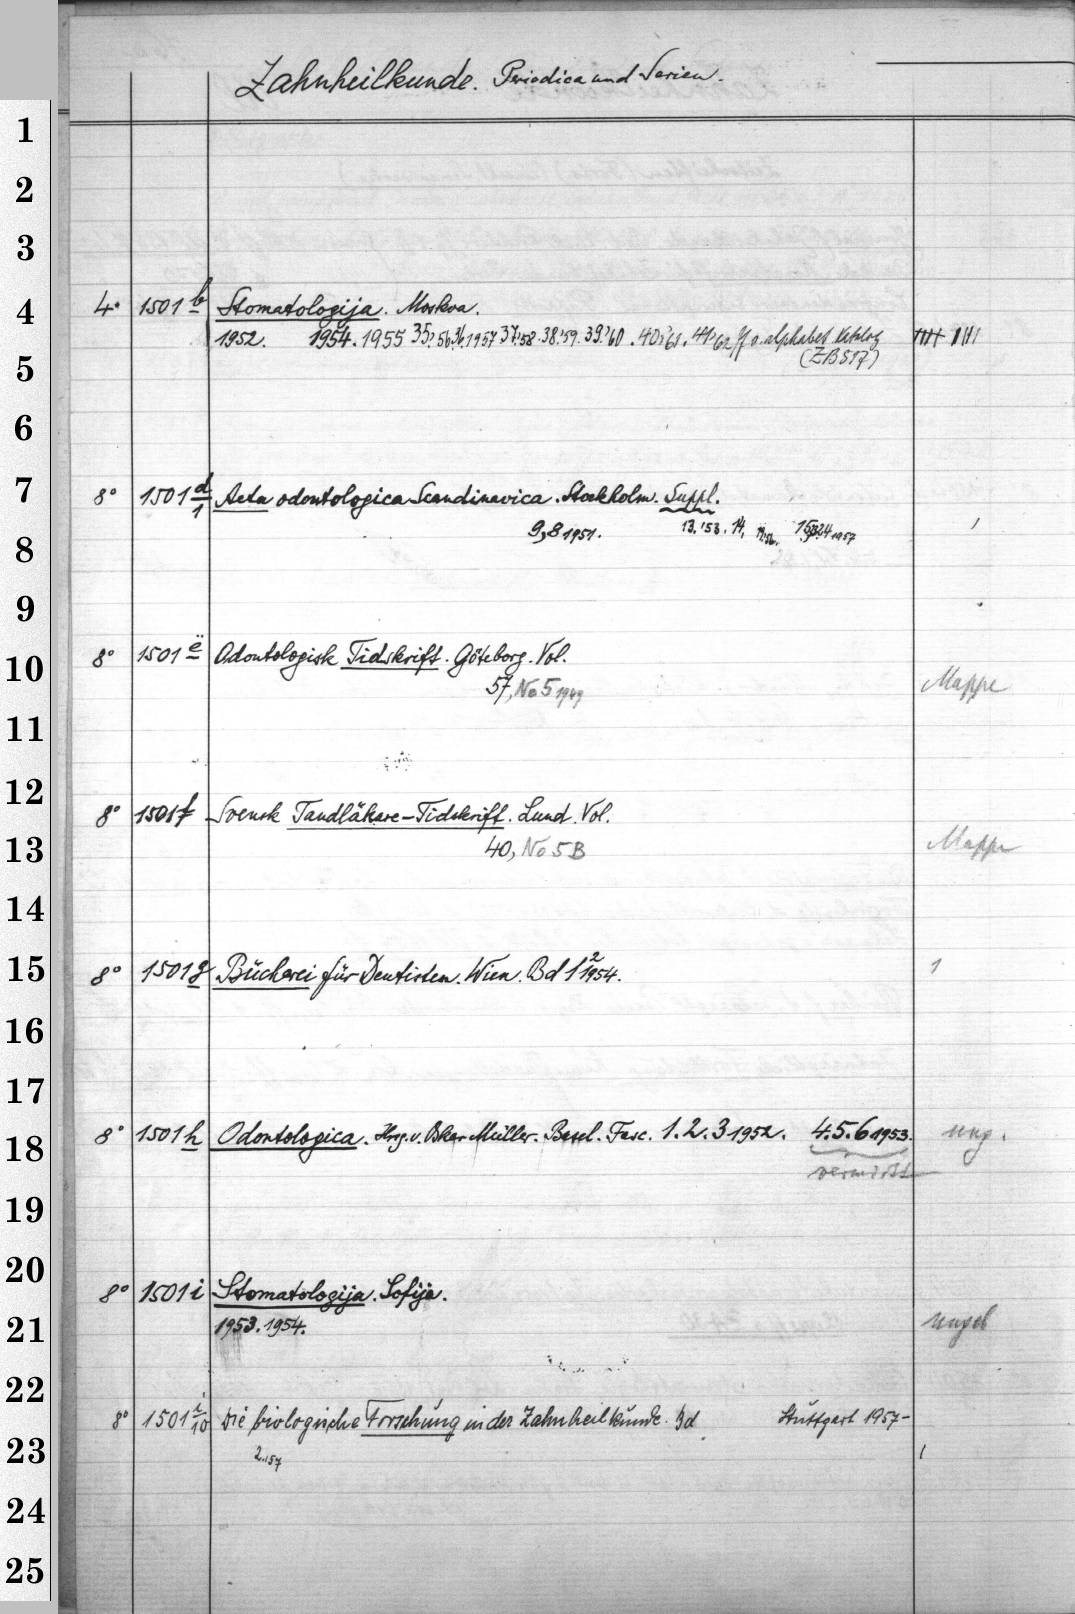 Zahnheilkunde. Periodica und Serien.
1
2
3
4 4° 1501 b Stomatologija. Moskva.
1952. 1954. 1955 35. '56. 36. 1957 37. '58. 38. '59. 39. '60. 40. '61. 41. '62 ff s. alphabet Katalog
(ZB 517)
5
6
7 8° 1501 d/1 Acta odontologica Scandinavica. Stockholm. Suppl.
9,8 1951. 13. '53. 14, 24 1957
8
9
10 8° 1501 e Odontologisk Tidskrift. Göteborg. Vol.
57, No 5 1949 Mappe
11
12 8° 1501 f Svensk Tandläkare-Tidskrift. Lund. Vol.
13 40, No 5 B Mappe
14
15 8° 1501 g Bücherei für Dentisten. Wien. Bd 1 2 1954. 1
16
17
18 8° 1501 h Odontologica. Hrsg. v. Oskar Müller. Basel. Fasc. 1. 2. 3 1952. 4. 5. 6 1953. ung.
vermisst
19
20 8° 1501 i Stomatologija. Sofija.
21 1953. 1954. ungeb
22
8° 1501 i/10 Die biologische Forschung in der Zahnheilkunde. Bd Stuttgart 1957-
23 2. '57 1
24
25